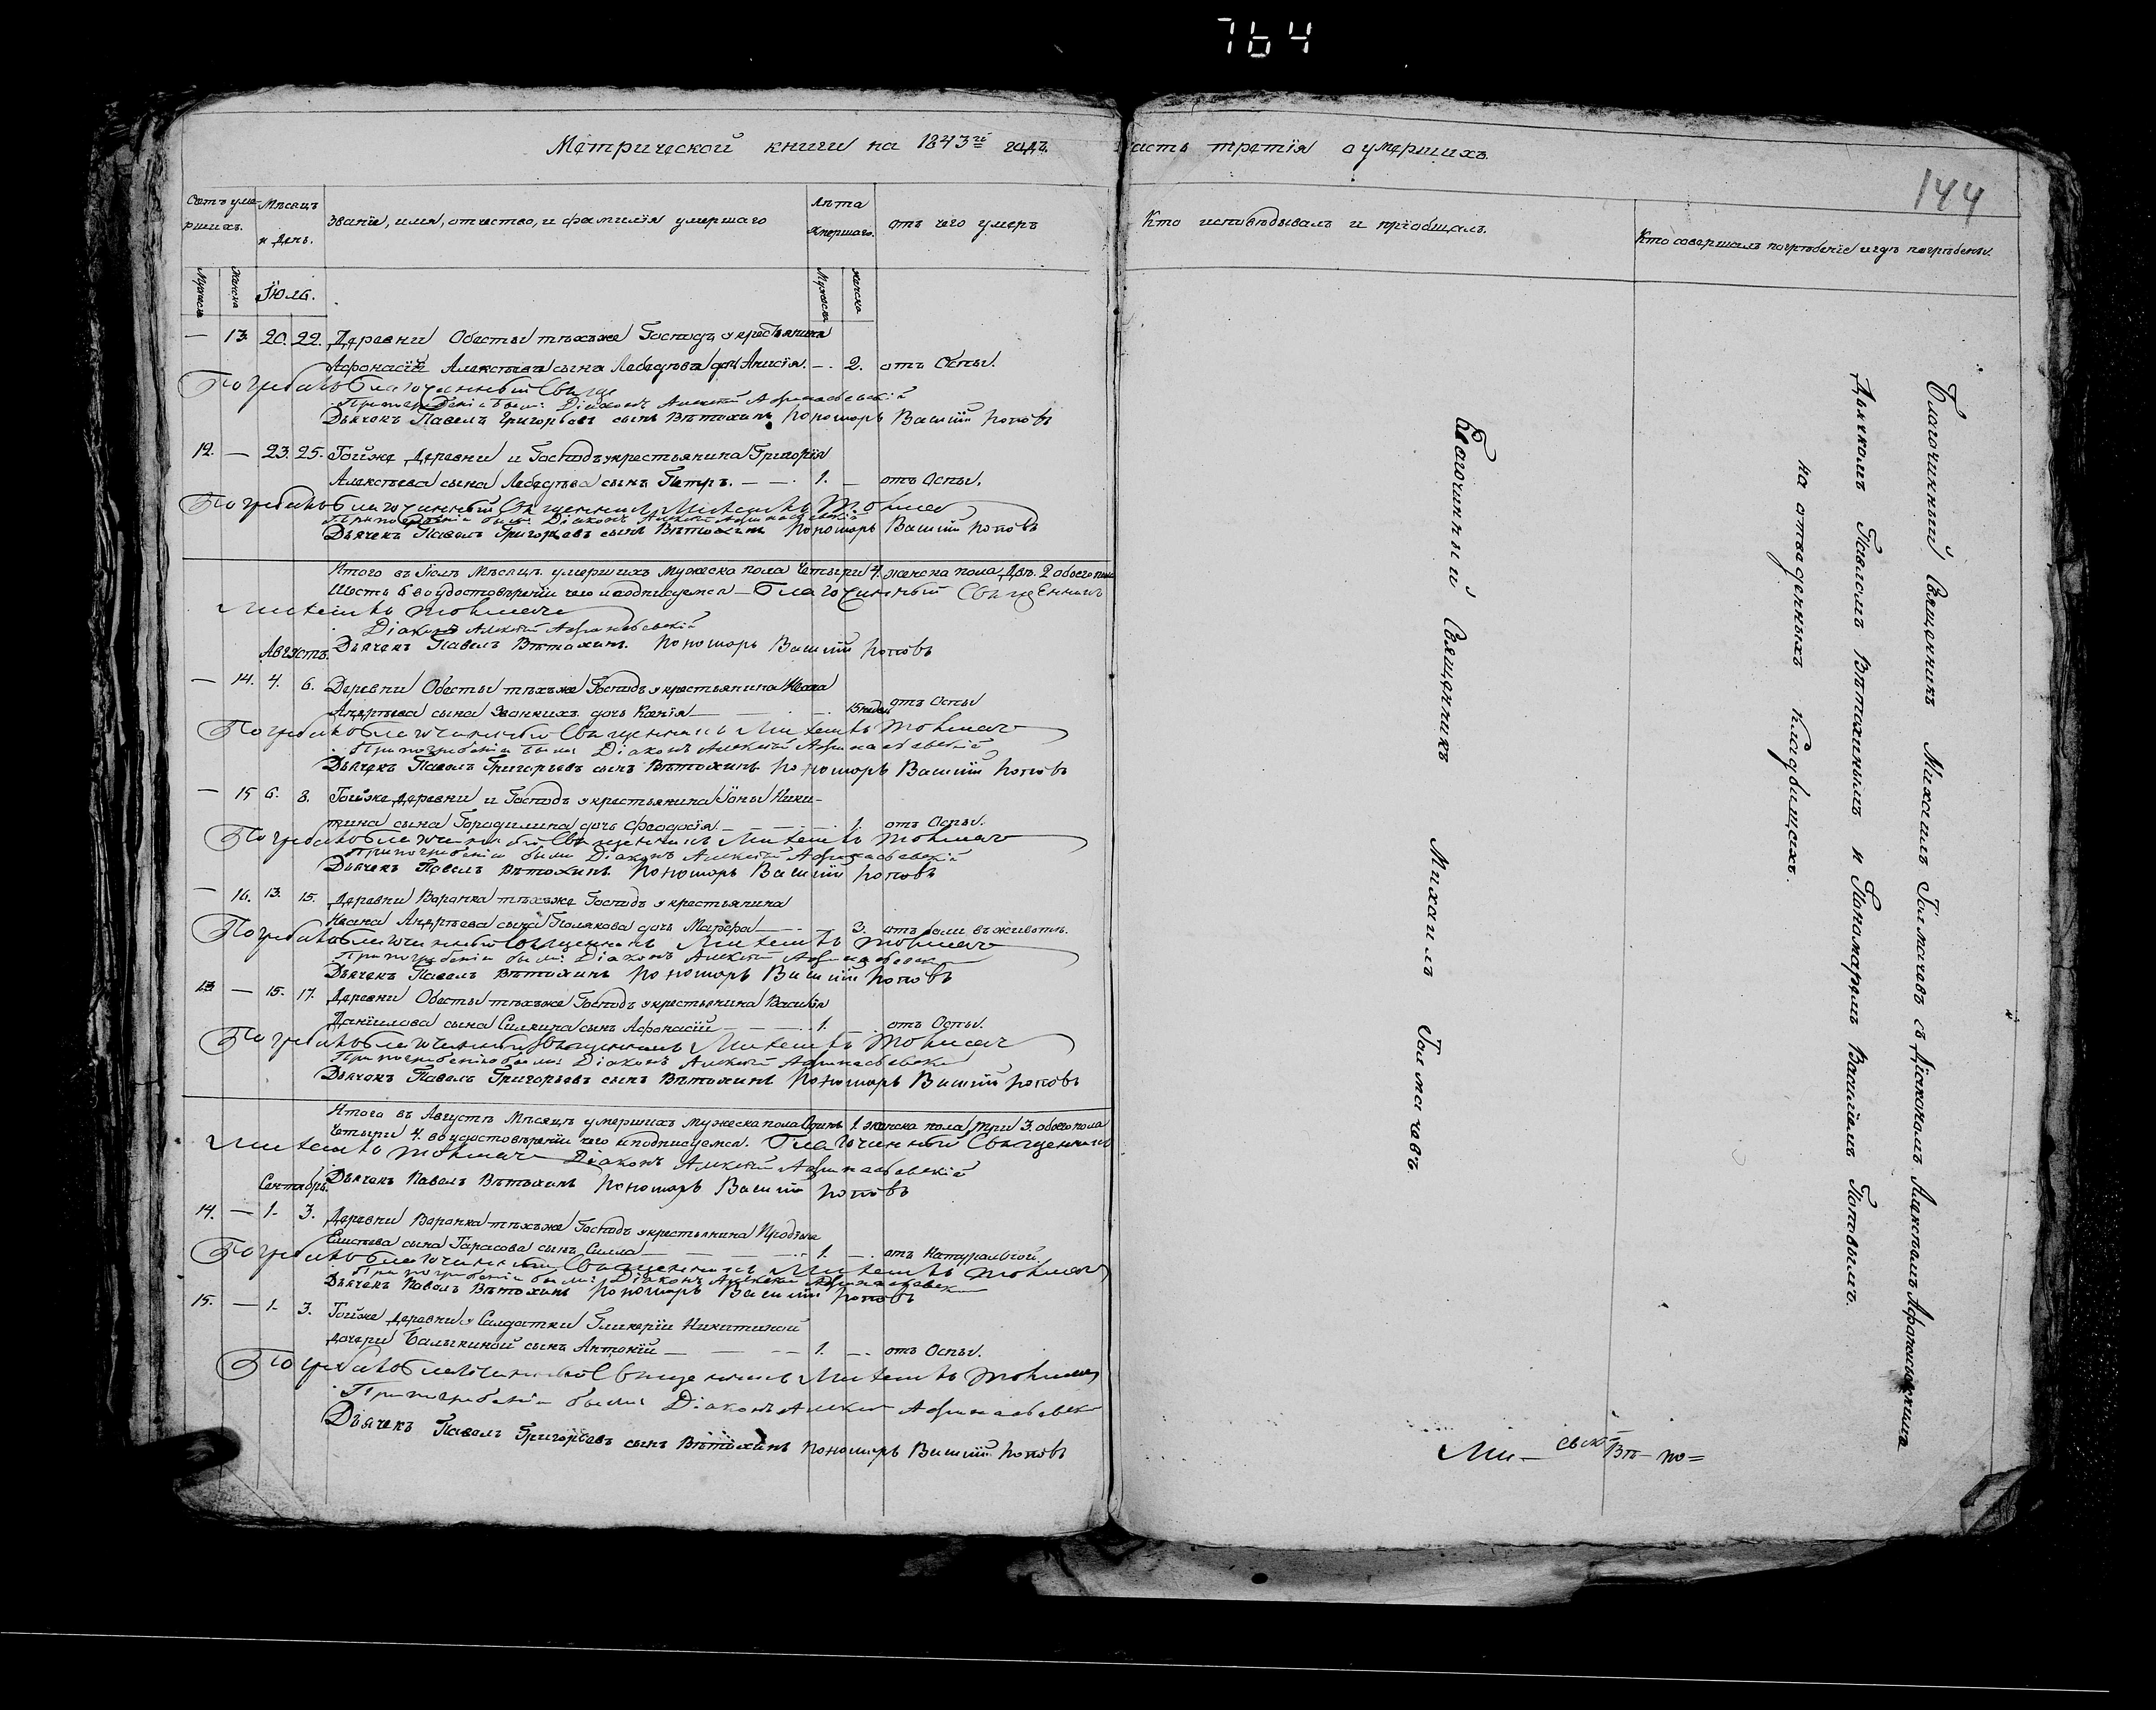 764
Метрической книги на 1843й годъ
асть третія о умершихъ
144
Счетъ уме-
ршихъ.
Мѣсяцъ
и День.
Званіе, имя, отчество, и фамилія умершаго
Лѣта
умершаго.
отъ чего умеръ
Кто исповѣдывалъ и пріобщалъ.
Кто совершалъ погрѣбеніе и гдѣ погрѣбены.
Мужеска
Женска
Іюль.
Мужеска
женска
— 13. 20. 22. Деревни Обесты тѣхъже Господъ у крестьянина
Афонасія Алексѣева сына Лебедѣва дочь Анисія. —. 2. отъ Оспы.
Погребалъ Благочинный Свяще
При погребеніи были: Діаконъ Алексѣй Афанасьевскій
Дьячекъ Павелъ Григорьевъ сынъ Вѣтохинъ Пономарь Василій Поповъ
12. — 23. 25. Тойже Деревни и Господъ у крестьянина Григорія
Алексѣева сына Лебедѣва сынъ Петръ. — —. 1. — отъ Оспы.
Погребалъ Благочинный Священникъ Михаилъ Толмач
При погребеніи были: Діаконъ Алексѣй Афанасьевскій
Дьячекъ Павелъ Григорьевъ сынъ Вѣтохинъ Пономарь Василій Поповъ
Итого въ Іюлѣ Мѣсяцѣ умершихъ мужеска пола Четыри 4. женска пола Двѣ. 2 обоего пола
Шесть 6 во удостовѣреніи чего и подписуемся — Благочинный Священникъ
Михаилъ Толмачев
Діаконъ Алексѣй Афанасьевскій
Августъ. Дьячекъ Павелъ Вѣтохинъ. Пономарь Василій Поповъ
— 14. 4. 6. Деревни Обесты тѣхъже Господъ у крестьянина Ивана
Андрѣева сына Званкихъ дочь Ксенія — — . — . 15 недель отъ Оспы
Погребалъ Благочинный Священникъ Михаилъ Толмачев
При погребеніи были: Діаконъ Алексѣй Афанасьевскій
Дьячекъ Павелъ Григорьевъ сынъ Вѣтохинъ Пономарь Василій Поповъ
— 15 6. 8. Тойже деревни и Господъ у крестьянина Іоны Ники-
тина сына Городилина дочь Феодосія — — — . 1. отъ Оспы.
Погребалъ Благочинный Священникъ Михаилъ Толмачев
При погребеніи были: Діаконъ Алексѣй Афанасьевскій
Дьячекъ Павелъ Вѣтохинъ Пономарь Василій Поповъ
— 16. 13. 15. Деревни Воронка тѣхъже Господъ у крестьянина
Ивана Андрѣева сына Полякова дочь Марфа — — . — 3. отъ боли въ животѣ.
Погребалъ Благочинный Священникъ Михаилъ Толмачев
При погребеніи были: Діаконъ Алексѣй Афанасьевск
Дьячекъ Павелъ Вѣтохинъ Пономарь Василій Поповъ
13 — 15. 17. Деревни Обесты тѣхъже Господъ у крестьянина Василія
Даніилова сына Силкина сынъ Афонасій — — — . 1. . отъ Оспы.
Погребалъ Благочинный Священникъ Михаилъ Толмачев
При погребеніи были: Діаконъ Алексѣй Афанасьевски
Дьячекъ Павелъ Григорьевъ сынъ Вѣтохинъ Пономарь Василій Поповъ
Итого въ Августѣ Мѣсяцѣ умершихъ мужеска пола Одинъ 1. женска пола три 3. обоего пола
Четыри 4. во удостовѣреніи чего и подписуемся. Благочинный Священникъ
Михаилъ Толмачев Діаконъ Алексѣй Афанасьевскій
Сентябрь. Дьячекъ Павелъ Вѣтохинъ Пономарь Василій Поповъ
14. — 1. 3. Деревни Воронка тѣхъже Господъ у крестьянина
Елисѣева сына Тарасова сынъ Силла — — — — . 1. —. отъ Натуральной.
Погребалъ Благочинный Священникъ Михаилъ Толмачев
При погребеніи были: Діаконъ Алексѣй Афанасьевск
Дьячекъ Павелъ Вѣтохинъ Пономарь Василій Поповъ
15. — 1. 3. Тойже деревни у Салдатки Гликеріи Никитиной
дочери Балыкиной сынъ Антоній — — — — 1. —. отъ Оспы.
Погребалъ Благочинный Священникъ Михаилъ Толмачев
При погребеніи были: Діаконъ Алексѣй Афанасьевск
Дьячекъ Павелъ Григорьевъ сынъ Вѣтохинъ Пономарь Василій Поповъ
Благочинный Священникъ Михаилъ Толмачевъ.
Благочинный Священникъ Михаилъ Толмачевъ съ Діакономъ Алексѣемъ Афанасьевскимъ
Дьячкомъ Павломъ Вѣтохинымъ и Пономаремъ Василіемъ Поповымъ.
на отведенныхъ кладбищахъ.
Ми— свск— Вѣ— по=